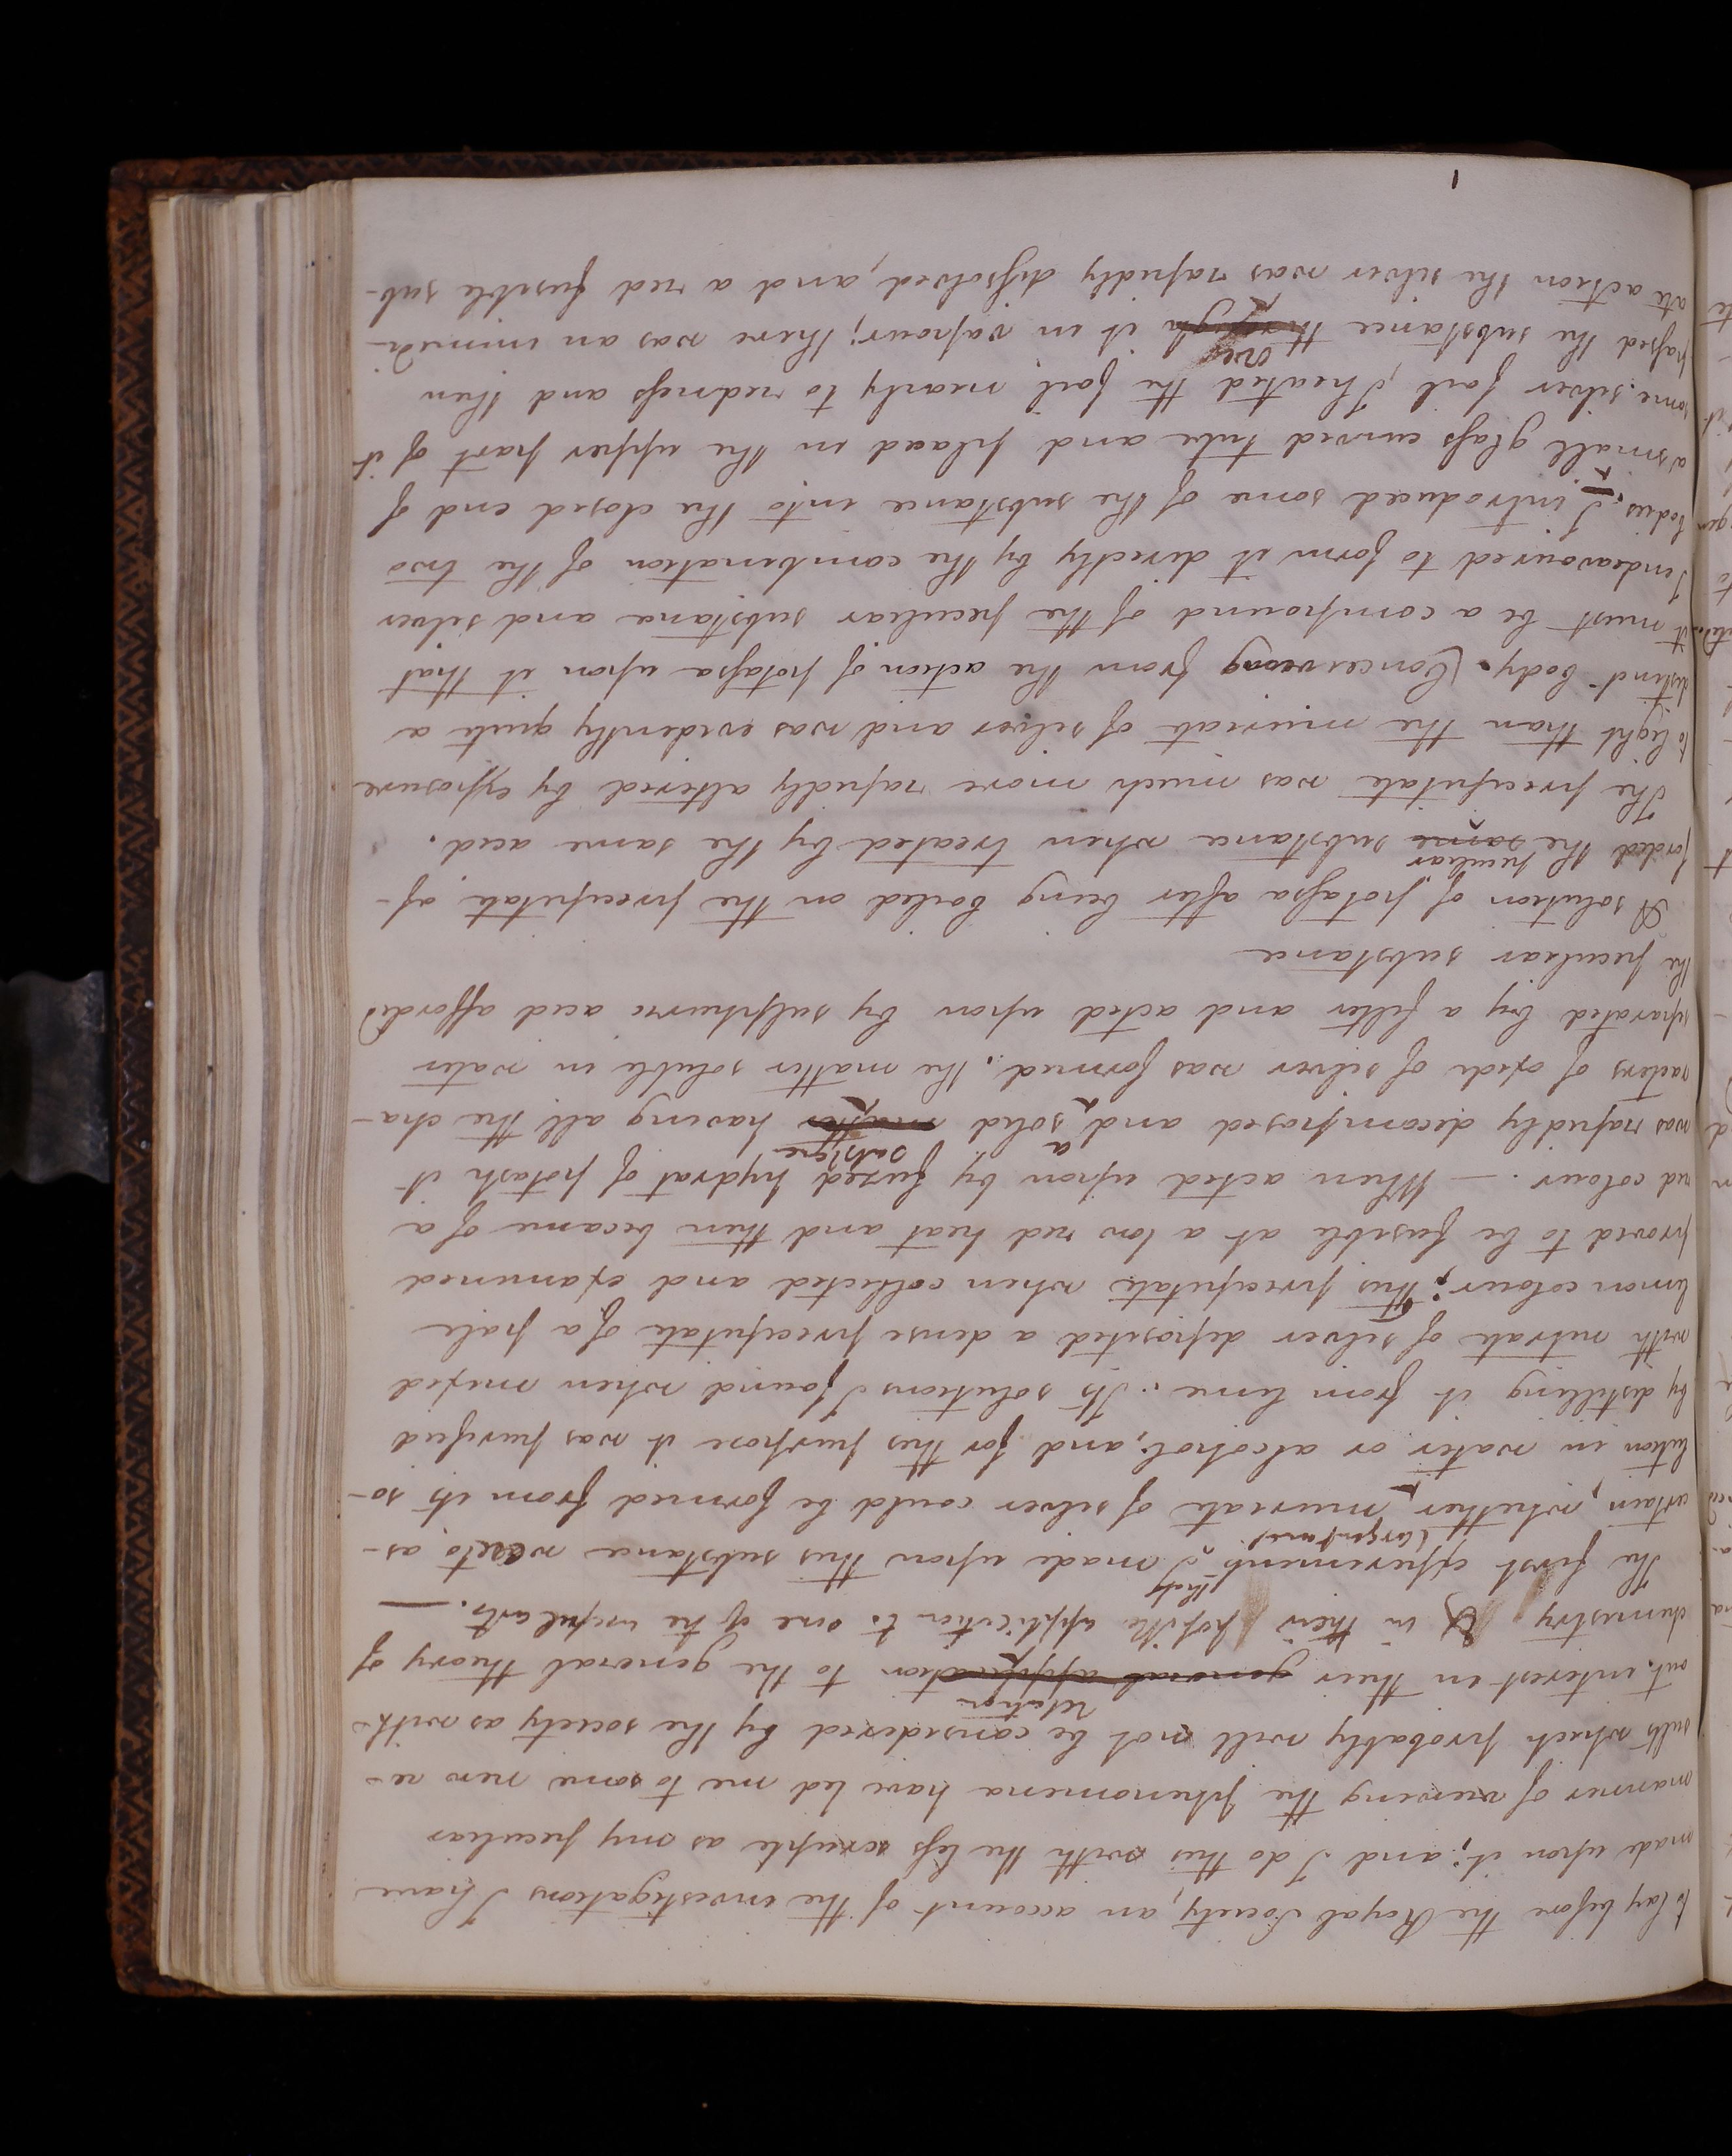 to lay before the Royal Society, an account of the investigations I have
made upon it; and I do this with the less scruple as my peculiar
manner of viewing the phenomena have led me to some new re-
sults which probably will not be considered by the society as with-
relation
out interest in their general application to the general theory of
chemistry & in their possible application to one of the useful arts. —
(Argentane)
The first experiments I made upon this substance were to as-
certain, whether muriate of silver could be formed from its so-
lution in water or alcohol; and for this purpose it was purified
by distilling it from lime. Its solutions I found when mixed
with nitrate of silver deposited a dense precipitate of a pale
lemon colour; this precipitate when collected and examined
proved to be fusible at a low red heat and then became of a
red colour. — When acted upon by fuzed hydrat of potash it
a substance
was rapidly decomposed and solid matter having all the cha-
racters of oxide of silver was formed. The matter soluble in water
separated by a filter and acted upon by sulphuric acid afforded
the peculiar substance
A solution of potassa after being boiled on the precipitate af-
peculiar
forded the same substance when treated by the same acid.
The precipitate was much more rapidly altered by exposure
to light than the muriate of silver and was evidently quite a
distinct body. Conceiving from the action of potassa upon it that
it must be a compound of the peculiar substance and silver
I endeavoured to form it directly by the combination of the two
bodies. I introduced some of the substance into the closed end of
a small glass curved tube and placed in the upper part of it
some silver foil, I heated the foil nearly to redness and then
over
passed the substance through it in vapour; there was an immedi-
ate action the silver was rapidly dissolved, and a red fusible sub-